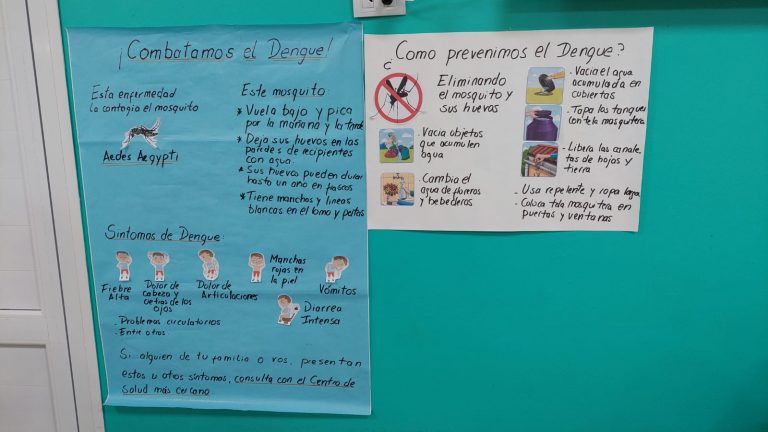 ¡Combatamos el Dengue!
Esta enfermedad
la contagia el mosquito
Aedes Aegypti
Este mosquito:
* Vuela bajo y pica
por la mañana y la tarde
* Deja sus huevos en las
paredes de recipientes
con agua.
* Sus huevos pueden durar
hasta un año en
* Tiene manchas y lineas
blancas en el lomo y patas
Sintomas de Dengue:
Fiebre
Alta
Dolor de
cabeza y
detras de los
ojos
Dolor de
Articulaciones
Manchas
rojas en
la piel
Vómitos
Diarrea
Intensa
- Problemas circulatorios
- Entre otros
Si alguien de tu familia o vos, presentan
estos u otros síntomas, consulta con el Centro de
Salud más cercano.
¿Como prevenimos el Dengue?
Eliminando
el mosquito y
sus huevos
- Vacia objetos
que acumulen
agua
- Cambia el
agua de floreros
y bebederos
- Vacia el agua
acumulada en
cubiertas
- Tapa los tanques
con tela mosquitera
- Libera las canale
tas de hojas y
tierra
- Usa repelente y ropa larga
- Coloca tela mosquitera en
puertas y ventanas